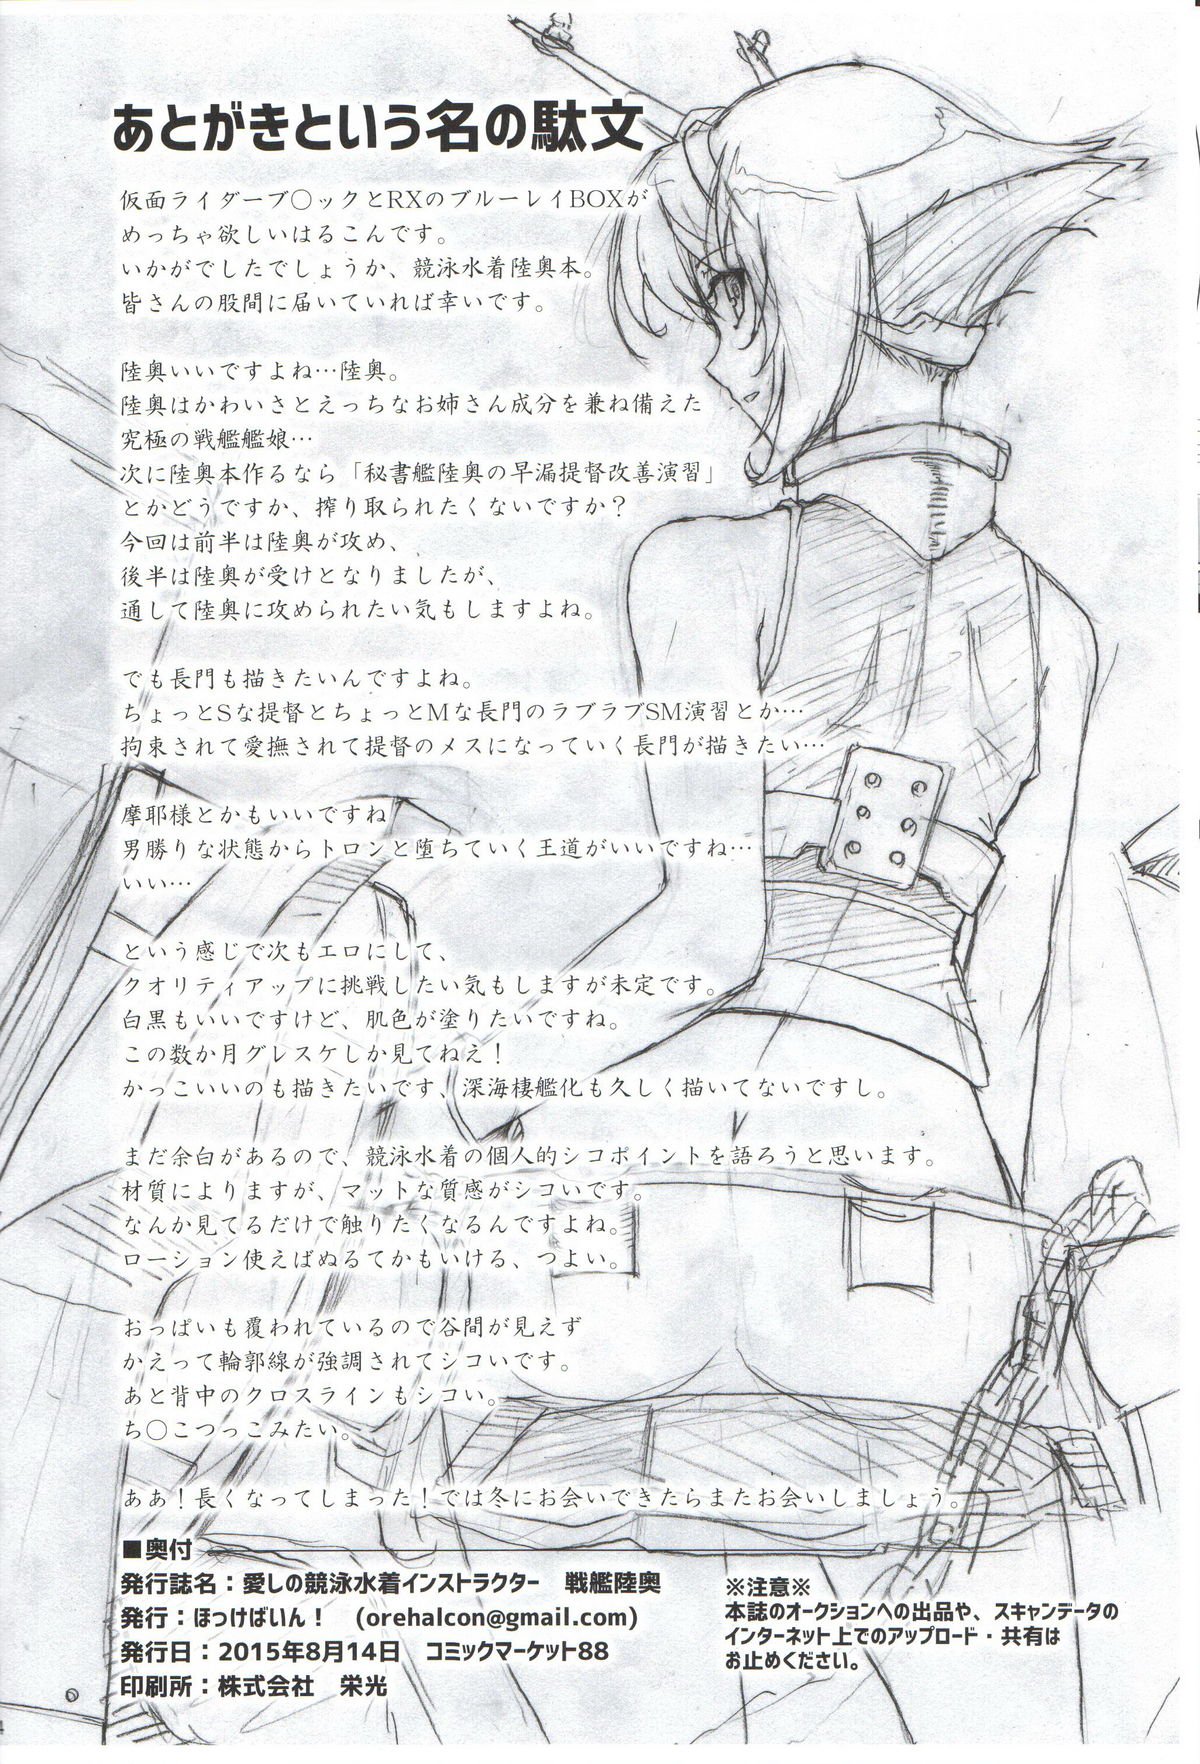 あとがきという名の駄文
仮面ライダーブ〇ックとRXのブルーレイBOXが
めっちゃ欲しいはるこんです。
いかがでしたでしょうか、競泳水着陸奥本。
皆さんの股間に届いていれば幸いです。
陸奥いいですよね…陸奥。
陸奥はかわいさとえっちなお姉さん成分を兼ね備えた
究極の戦艦艦娘…
次に陸奥本作るなら「秘書艦陸奥の早漏提督改善演習」
とかどうですか、搾り取られたくないですか？
今回は前半は陸奥が攻め、
後半は陸奥が受けとなりましたが、
通して陸奥に攻められたい気もしますよね。
でも長門も描きたいんですよね。
ちょっとSな提督とちょっとMな長門のラブラブSM演習とか…
拘束されて愛撫されて提督のメスになっていく長門が描きたい…
摩耶様とかもいいですね
男勝りな状態からトロンと堕ちていく王道がいいですね…
いい…
という感じで次もエロにして、
クオリティアップに挑戦したい気もしますが未定です。
白黒もいいですけど、肌色が塗りたいですね。
この数か月グレスケしか見てねえ！
かっこいいのも描きたいです、深海棲艦化も久しく描いてないですし。
まだ余白があるので、競泳水着の個人的シコポイントを語ろうと思います。
材質によりますが、マットな質感がシコいです。
なんか見てるだけで触りたくなるんですよね。
ローション使えばぬるてかもいける、つよい。
おっぱいも覆われているので谷間が見えず
かえって輪郭線が強調されてシコいです。
あと背中のクロスラインもシコい。
ち〇こつっこみたい。
ああ！長くなってしまった！では冬にお会いできたらまたお会いしましょう。
■奥付
発行誌名：愛しの競泳水着インストラクター　戦艦陸奥
発行：ほっけばいん！　（orehalcon@gmail.com）
発行日：2015年8月14日　コミックマーケット88
印刷所：株式会社　栄光
※注意※
本誌のオークションへの出品や、スキャンデータの
インターネット上でのアップロード・共有は
お止めください。